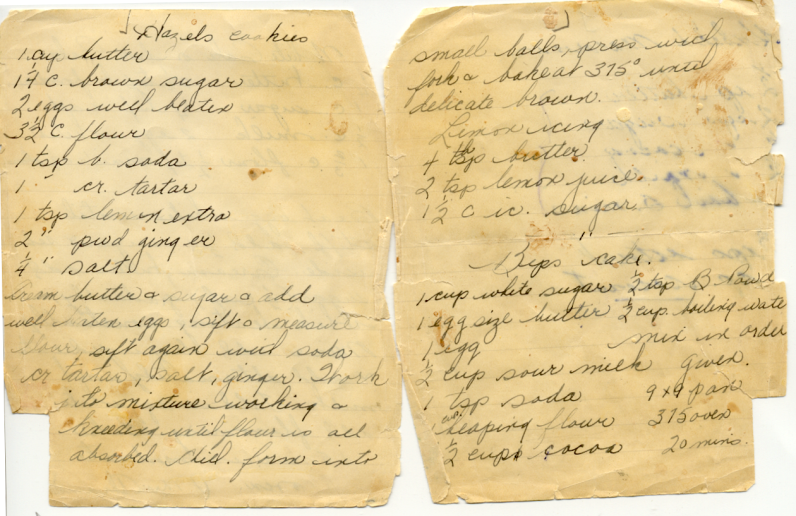 Hazels cookies
1 cup butter
1 4 c. brown sugar
2 eggs well beaten
3 1/2 c. flour
1 tsp b. soda
1 " cr. tartar
1 tsp lemon extra
2 " pwd ginger
1/4 " salt
Cream butter & sugar & add
well beaten eggs, sift & measure
flour, sift again with soda
cr tartar, salt, ginger. Work
into mixture working &
kneeding until flour is all
absorbed. Chill. form into
small balls, press with
fork & bake at 375° until
delicate brown.
Limon icing
4 tbsp butter
2 tsp lemon juice.
1 1/2 C ic. sugar
Bips cake.
1 cup white sugar 1/2 tsp B Powd
1 egg size butter 1/2 cup. boiling wate
1 egg mix in order
1/2 cup sour milk given.
1 tsp soda 9 x 9 pan
1 cup heaping flour 375 oven
1/2 cups cocoa 20 mins.